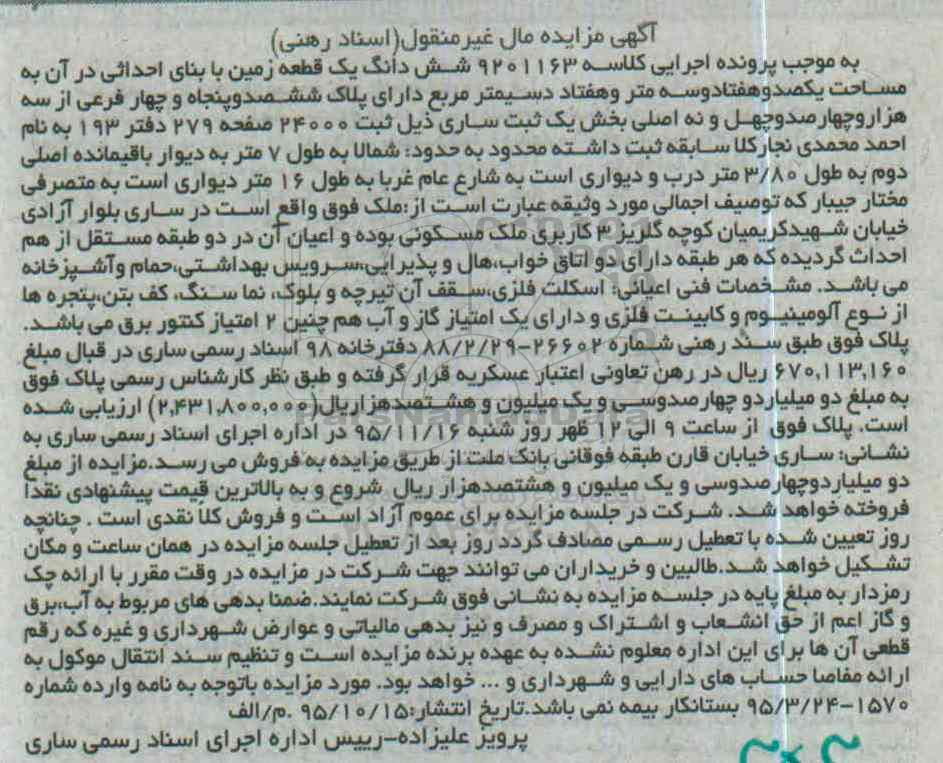 آگهی مزایده مال غیرمنقول(اسناد رهنی)
به موجب پرونده اجرایی کلاسه ۹۲۰۱۱۶۳ شش دانگ یک قطعه زمین با بنای احداثی در آن به
مساحت یکصدوهفتادوسه متر وهفتاد دسیمتر مربع دارای پلاک ششصدوپنجاه و چهار فرعی از سه
هزاروچهارصدوچهل و نه اصلی بخش یک ثبت ساری ذیل ثبت ۲۴۰۰۰ صفحه ۲۷۹ دفتر ۱۹۳ به نام
احمد محمدی نجارکلا سابقه ثبت داشته محدود به حدود: شمالا به طول ۷ متر به دیوار باقیمانده اصلی
دوم به طول ۳/۸۰ متر درب و دیواری است به شارع عام غربا به طول ۱۶ متر دیواری است به متصرفی
مختار جیبار که توصیف اجمالی مورد وثیقه عبارت است از:ملک فوق واقع است در ساری بلوار آزادی
خیابان شهیدکریمیان کوچه گلریز ۳ کاربری ملک مسکونی بوده و اعیان آن در دو طبقه مستقل از هم
احداث گردیده که هر طبقه دارای دو اتاق خواب،هال و پذیرایی،سرویس بهداشتی،حمام وآشپزخانه
می باشد. مشخصات فنی اعیانی: اسکلت فلزی،سقف آن تیرچه و بلوک، نما سنگ، کف بتن،پنجره ها
از نوع آلومینیوم و کابینت فلزی و دارای یک امتیاز گاز و آب هم چنین ۲ امتیاز کنتور برق می باشد.
پلاک فوق طبق سند رهنی شماره ۲۶۶۰۲-۸۸/۲/۲۹ دفترخانه ۹۸ اسناد رسمی ساری در قبال مبلغ
۶۷۰,۱۱۳,۱۶۰ ریال در رهن تعاونی اعتبار عسکریه قرار گرفته و طبق نظر کارشناس رسمی پلاک فوق
به مبلغ دو میلیاردو چهارصدوسی و یک میلیون و هشتصدهزارریال(۲,۴۳۱,۸۰۰,۰۰۰) ارزیابی شده
است. پلاک فوق از ساعت ۹ الی ۱۲ ظهر روز شنبه ۹۵/۱۱/۱۶ در اداره اجرای اسناد رسمی ساری به
نشانی: ساری خیابان قارن طبقه فوقانی بانک ملت از طریق مزایده به فروش می رسد.مزایده از مبلغ
دو میلیاردوچهارصدوسی و یک میلیون و هشتصدهزار ریال شروع و به بالاترین قیمت پیشنهادی نقدا
فروخته خواهد شد. شرکت در جلسه مزایده برای عموم آزاد است و فروش کلا نقدی است . چنانچه
روز تعیین شده با تعطیل رسمی مصادف گردد روز بعد از تعطیل جلسه مزایده در همان ساعت و مکان
تشکیل خواهد شد.طالبین و خریداران می توانند جهت شرکت در مزایده در وقت مقرر با ارائه چک
رمزدار به مبلغ پایه در جلسه مزایده به نشانی فوق شرکت نمایند.ضمنا بدهی های مربوط به آب،برق
و گاز اعم از حق انشعاب و اشتراک و مصرف و نیز بدهی مالیاتی و عوارض شهرداری و غیره که رقم
قطعی آن ها برای این اداره معلوم نشده به عهده برنده مزایده است و تنظیم سند انتقال موکول به
ارائه مفاصا حساب های دارایی و شهرداری و ... خواهد بود. مورد مزایده باتوجه به نامه وارده شماره
۱۵۷۰-۹۵/۳/۲۴ بستانکار بیمه نمی باشد.تاریخ انتشار:۹۵/۱۰/۱۵ .م/الف
پرویز علیزاده-رییس اداره اجرای اسناد رسمی ساری